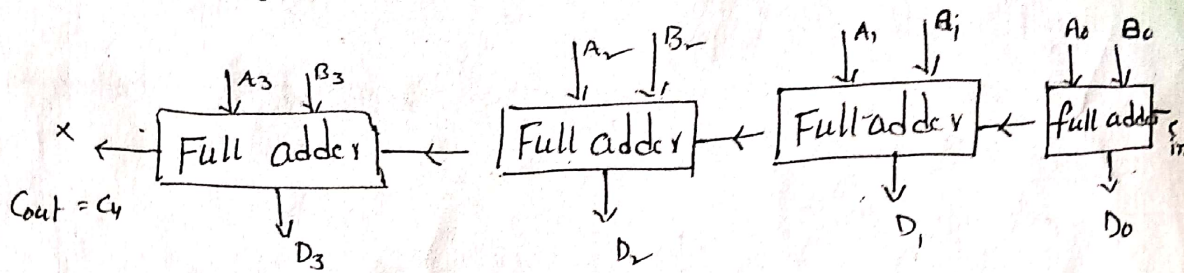 A3 B3 A2 B2 A1 B1 A0 B0
x Full adder Full adder Full adder full adder Cin
Cout = C4
D3 D2 D1 D0